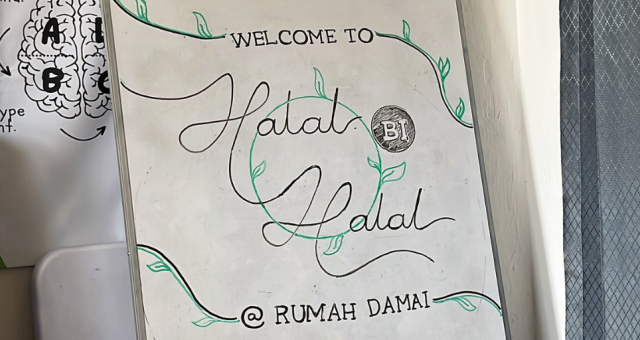 WELCOME TO
Halal
BI
Halal
@ RUMAH DAMAI
A
B
C
ype
nt.